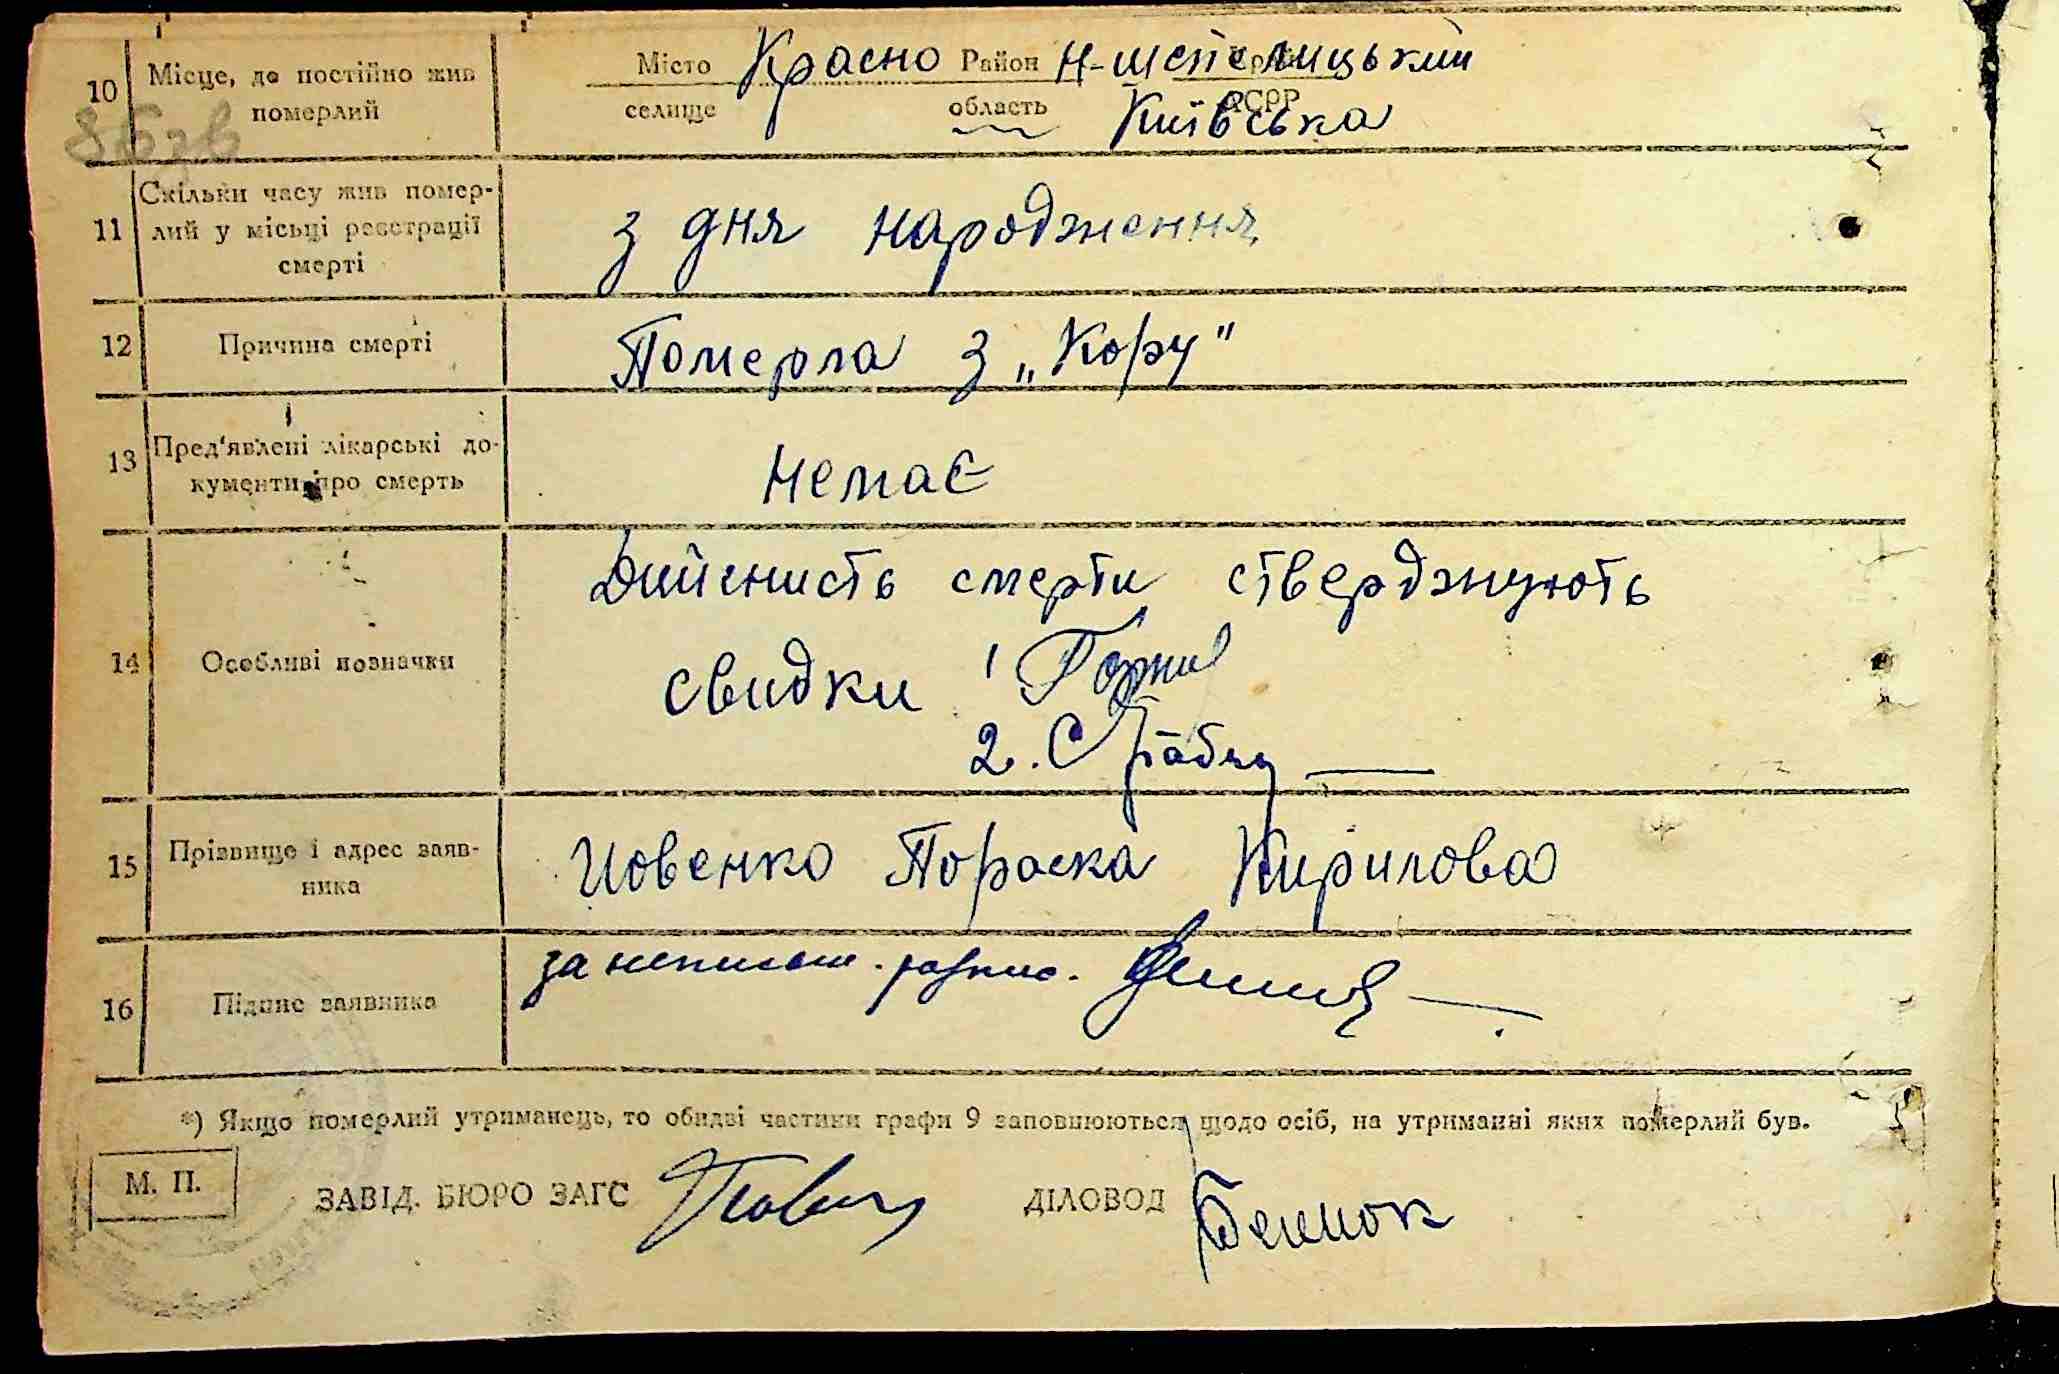 10 Місце, де постійно жив померлий
Місто селище Красно Район Н-Шепелицький
область Київська АСРР
11 Скільки часу жив помер-
лий у місцці реєстрації
смерті
з дня народження
12 Причина смерті
Померла з „Кору"
13 Пред'явлені лікарські до-
кументи про смерть
немає
14 Особливі позначки
Дийснисть смерти стверджують
свидки 1
2. С
15 Прізвище і адрес заяв-
ника
Йовенко Пораска Кирилова
16 Підпис заявника
за неписьм.
*) Якщо померлий утриманець, то обидві частини графи 9 заповнюються щодо осіб, на утриманні яких померлий був.
М. П.
ЗАВІД. БЮРО ЗАГС ДІЛОВОД